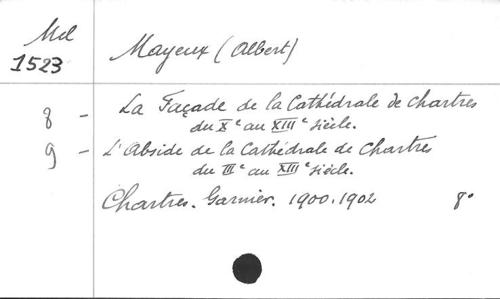 Mel
1523
Mayeux (Albert)
8 - La Façade de la Cathédrale de Chartres
du Xe au XIIIe siècle.
9 - L'Abside de la Cathédrale de Chartres
du IIIe au XIIIe siècle.
Chartres. Garnier. 1900.1902 8°